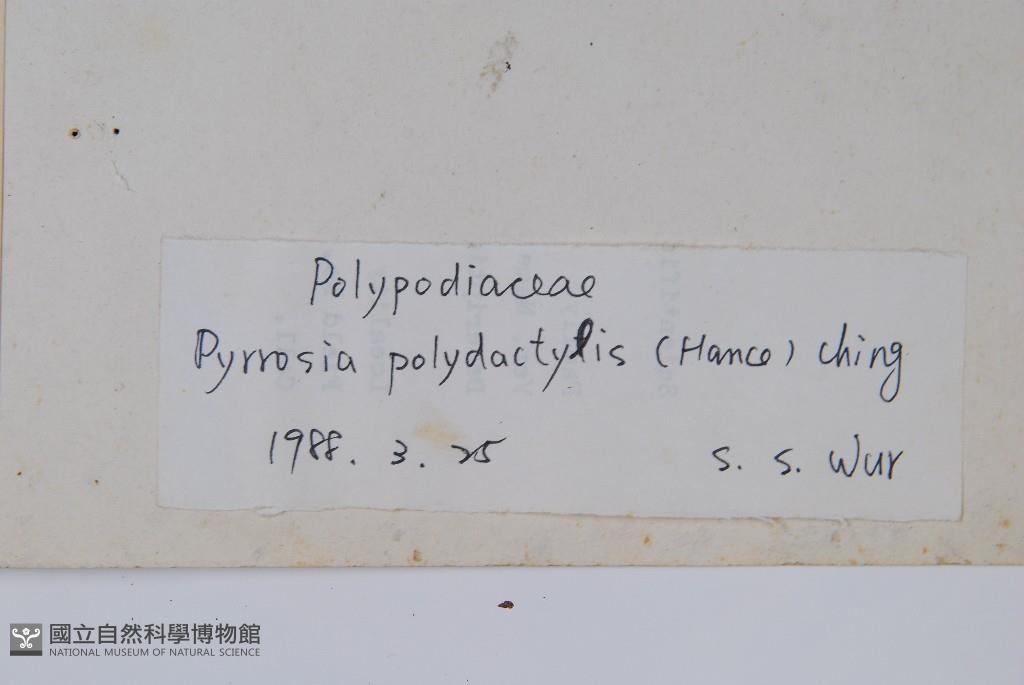 Polypodiaceae
Pyrrosia polydactylis (Hance) Ching
1988. 3. 25
S. S. Wur
國立自然科學博物館
NATIONAL MUSEUM OF NATURAL SCIENCE